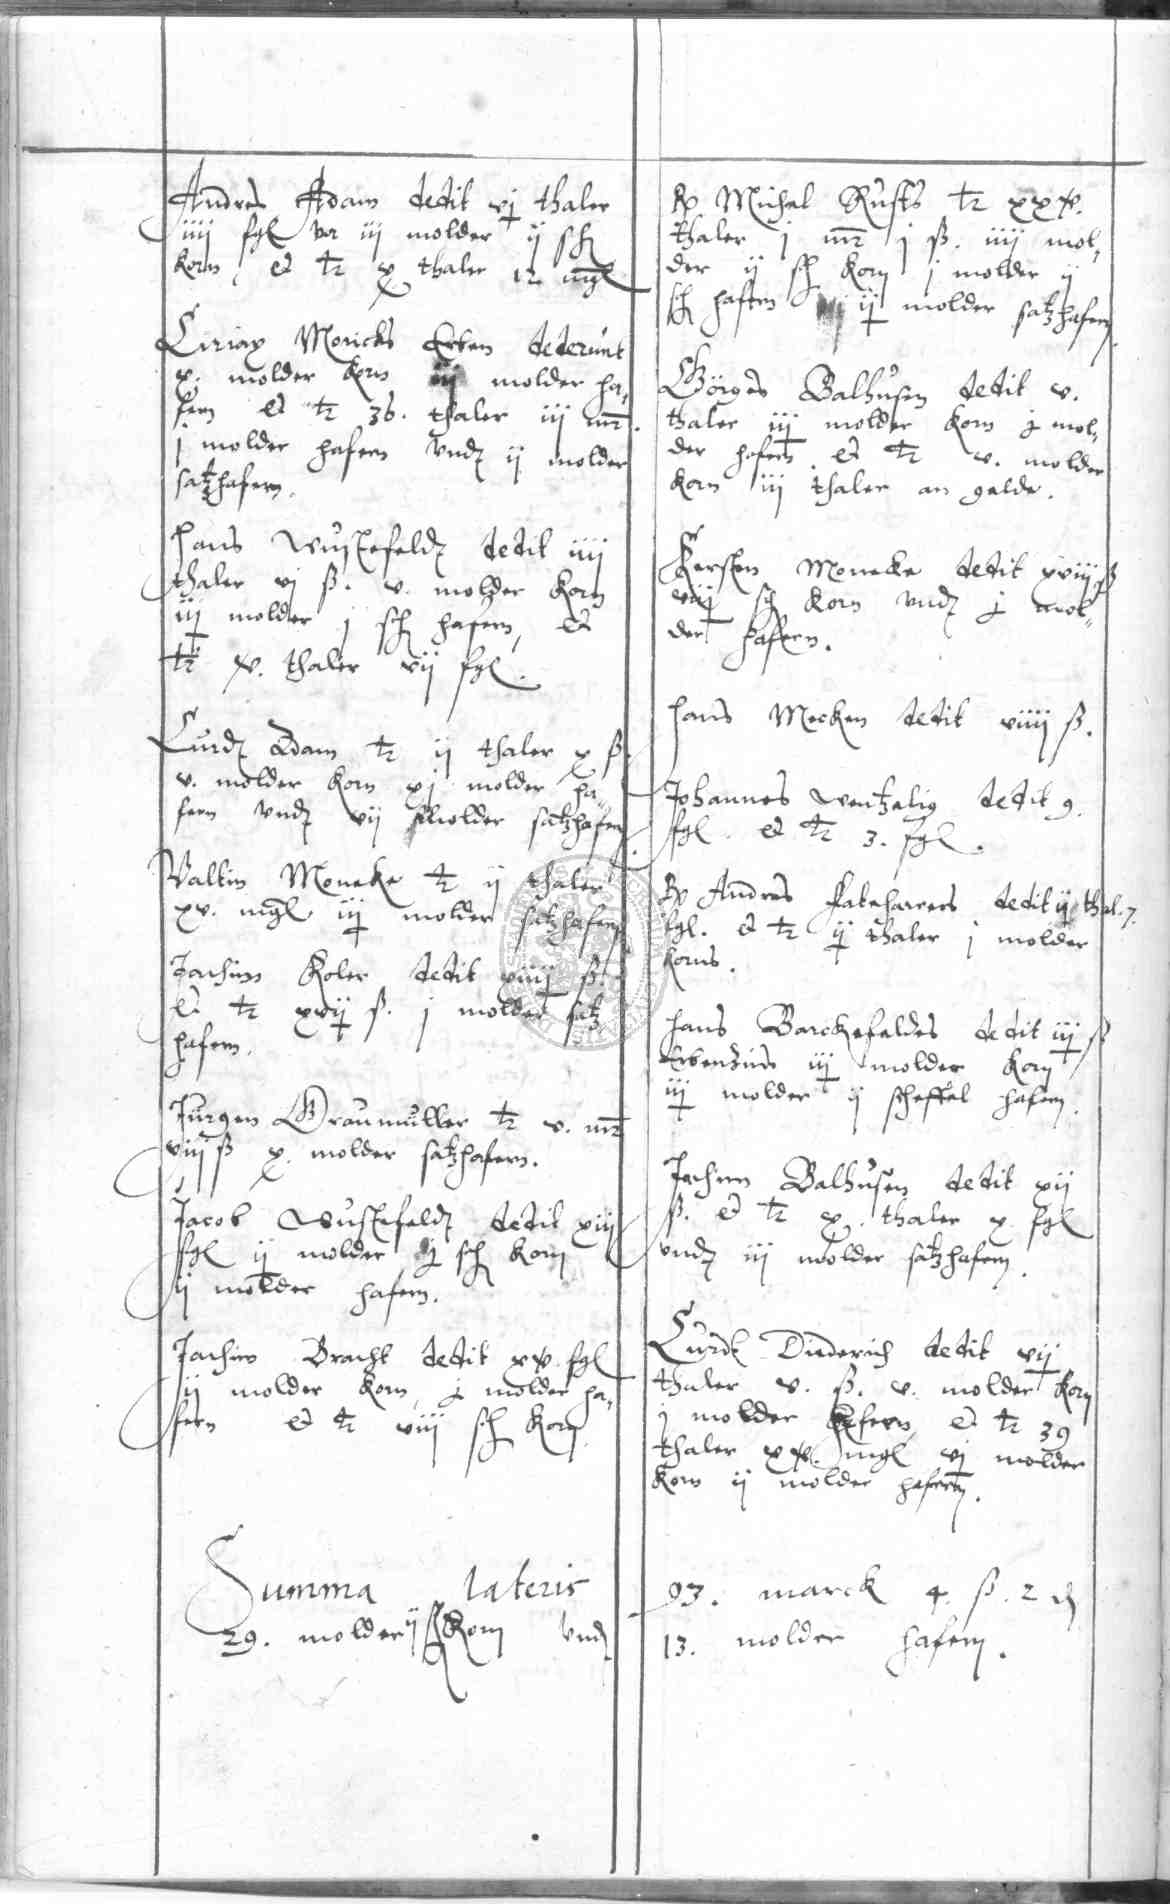 Andres Adam dedit vj thaler
iiij sgl vor iij molder ij sch
korn, et tr x thaler 12 mgl
Ciriax Moricks Erben dederunt
x. molder korn iij molder ha,
fern et tr 36. thaler iij mr.
j molder hafern vndt ij molder
satzhafern.
Hans Wustefeldt dedit iiij
thaler vj ß. v. molder korn
iij molder j sch hafern, et
tr xv. thaler vij sgl.
Curdt Adam tr ij thaler x ß
v. molder korn xj molder ha,
fern vndt vij molder satzhafern.
Valtin Moneke tr ij thaler
xv. mgl iij molder satzhafern
Jachim Koler dedit viiij ß.
et tr xvij ß. j molder satz
hafern.
Jurgen Graumuller tr v. mr
viij ß x. molder satzhafern.
Jacob Wustefeldt dedit xiij
sgl ij molder j sch korn
ij molder hafern.
Jachim Bracht dedit xv. sgl
ij molder korn, j molder ha,
fern et tr viij sch korn
Summa lateris
29. molder ij sch korn vndt
Michal Rusts tr xxv.
thaler j mr j ß. iiij mol,
der ij sch korn j molder ij
sch hafern ij molder satzhafern.
Görges Balhusen dedit v.
thaler iij molder korn j mol,
der hafern. et tr v. molder
korn iij thaler an gelde.
Kersten Moneke dedit xviij ß
viij sch korn vndt j mol,
der hafern.
Hans Mecken dedit viiij ß.
Johannes Wentzelig dedit 9.
sgl. et tr 3. sgl.
Andres Fateharrers dedit ij thal. 7.
sgl. et tr ij thaler j molder
korns.
Hans Barckefeldes dedit iij ß
Erbenzins iij molder korn
iij molder ij scheffel hafern.
Jachim Balhusen dedit xij
ß. et tr x. thaler x sgl
vndt iij molder satzhafern.
Curdt Diederich dedit vij
thaler v. ß. v. molder korn
j molder hafern, et tr 39
thaler xv. mgl vj molder
korn ij molder hafern.
93. marck 4. ß. 2 ₰
13. molder hafern.